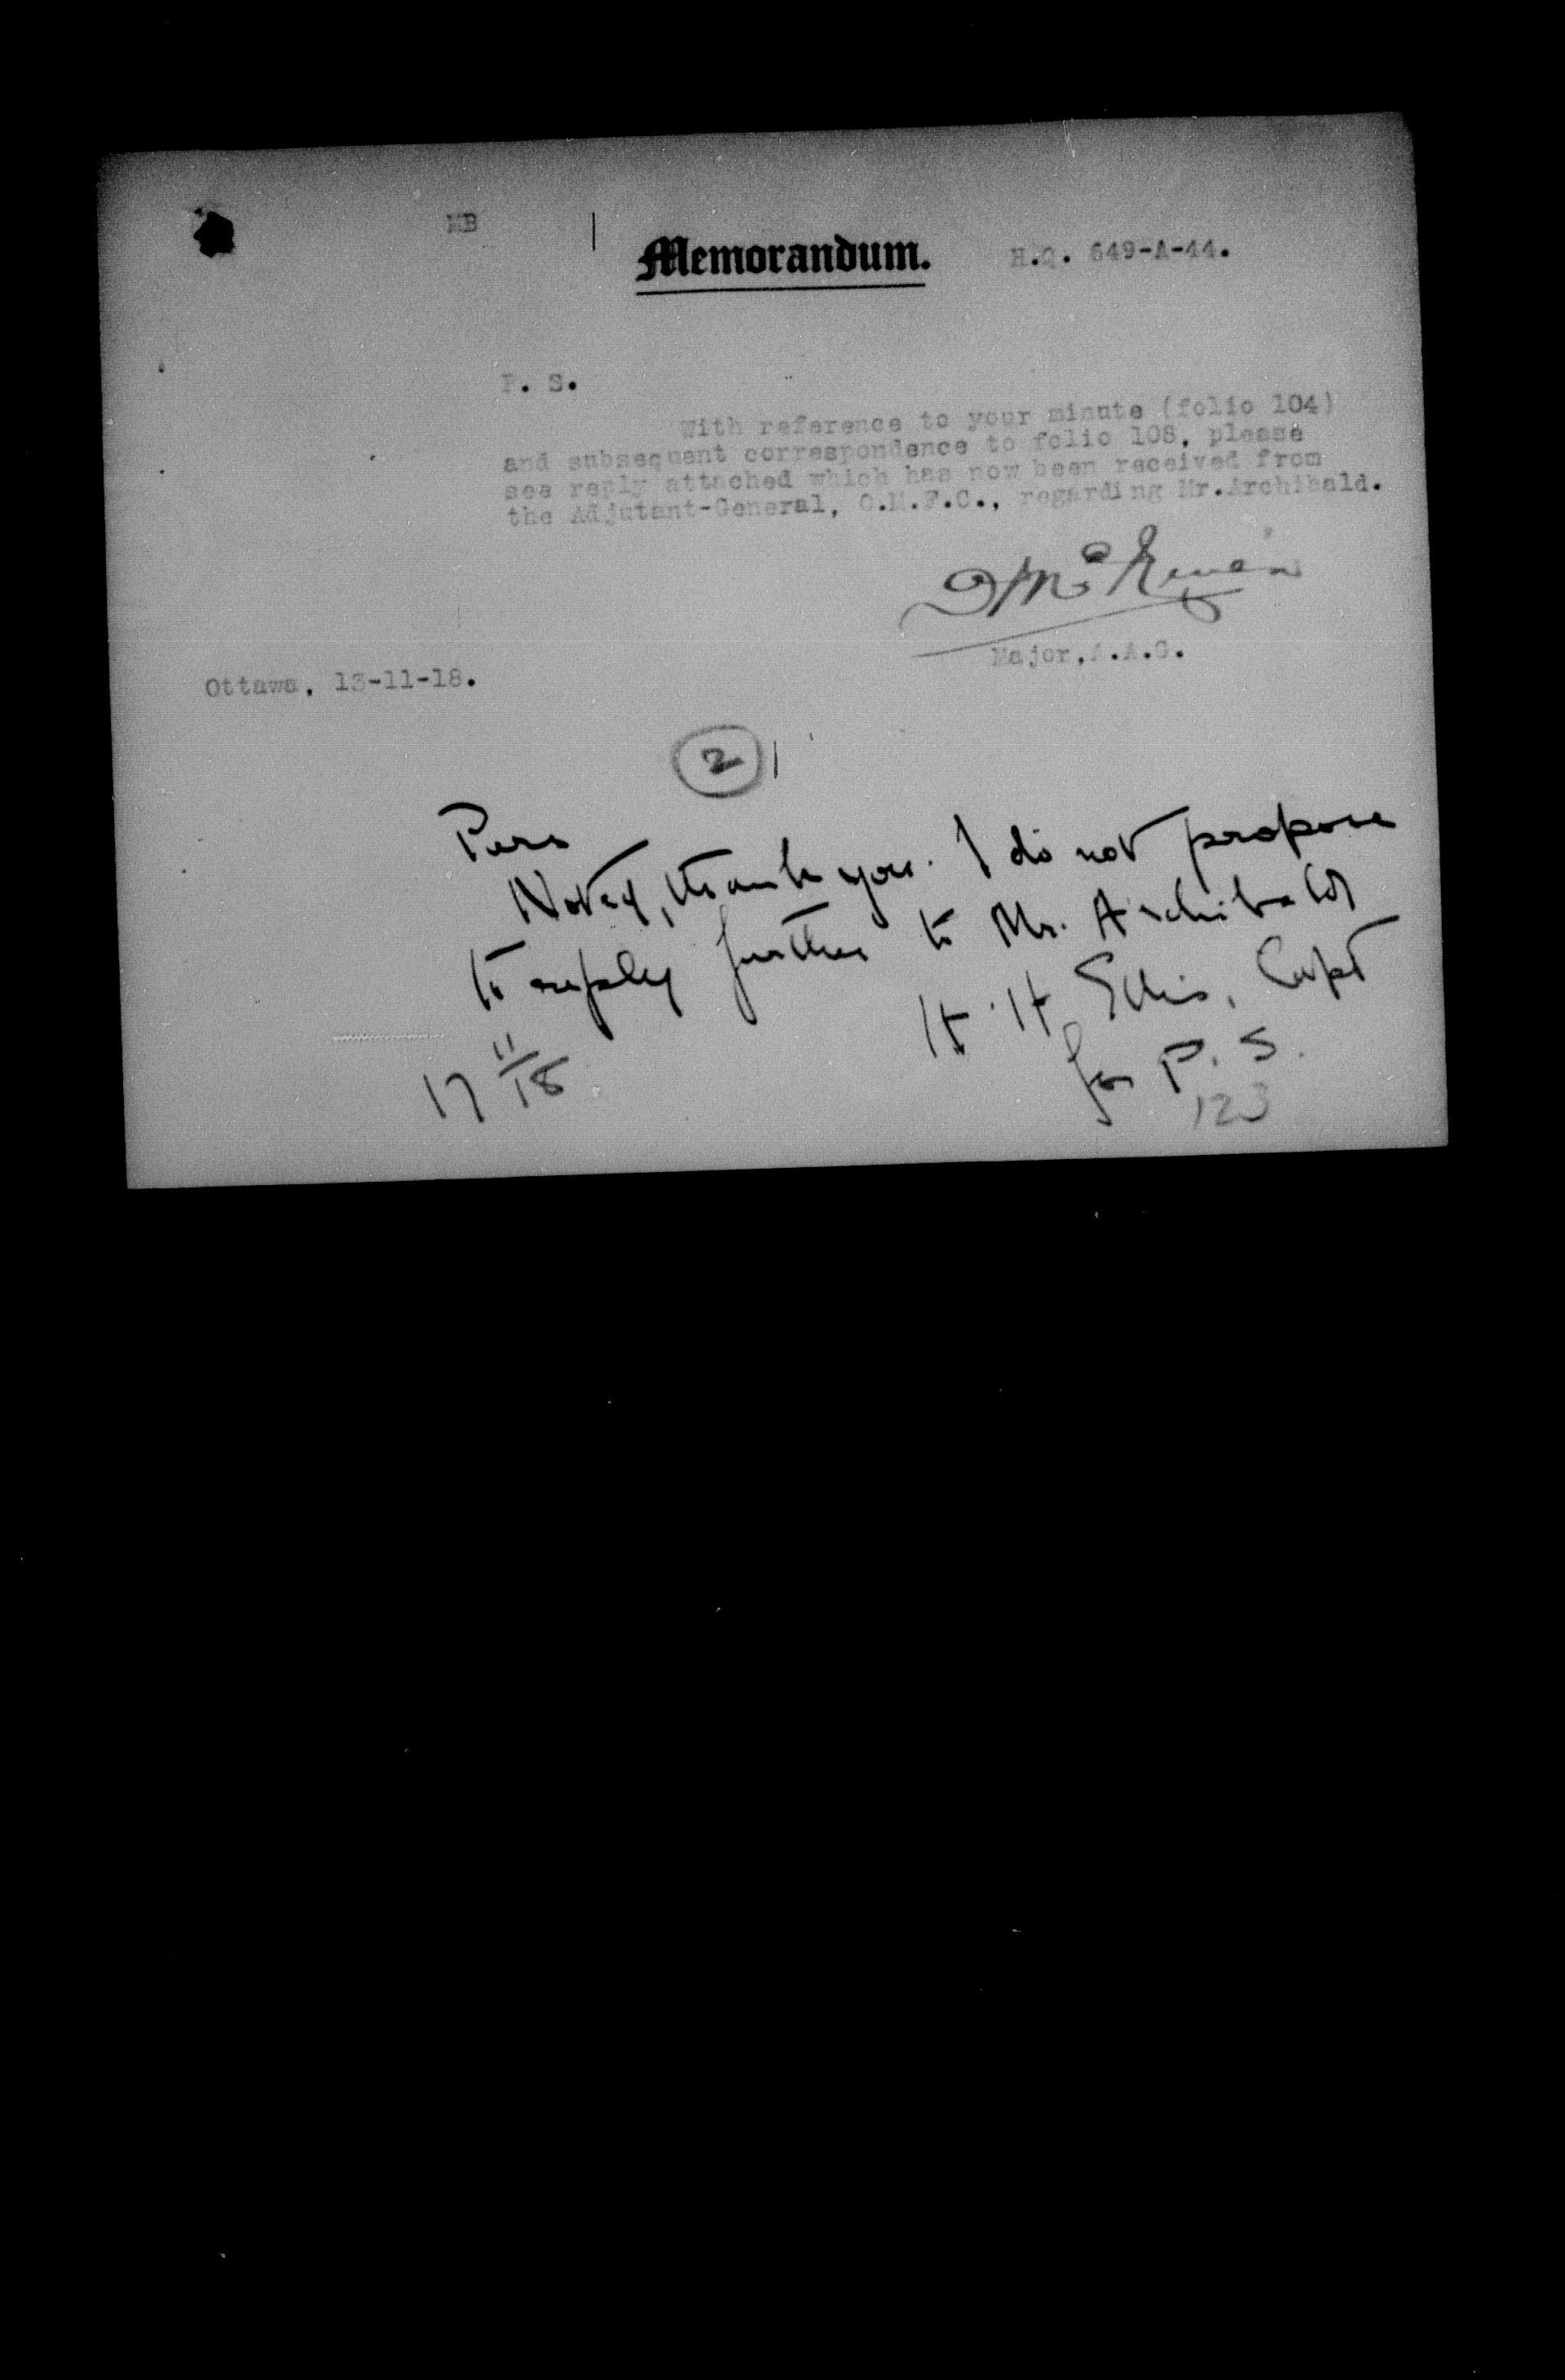 MB
Memorandum.
H.Q. 649-A-44.
P. S.
With reference to your minute (folio 104)
and subsequent correspondence to folio 108, please
see reply attached which has now been received from
the Adjutant-General, O.M.F.C., regarding Mr.Archibald.
Major, A.A.G.
Ottawa, 13-11-18.
2
Pers
Noted, thank you. I do not propose
to reply further to Mr. Archibald
H. H. Ellis, Capt
for P. S.
17 11/18
123